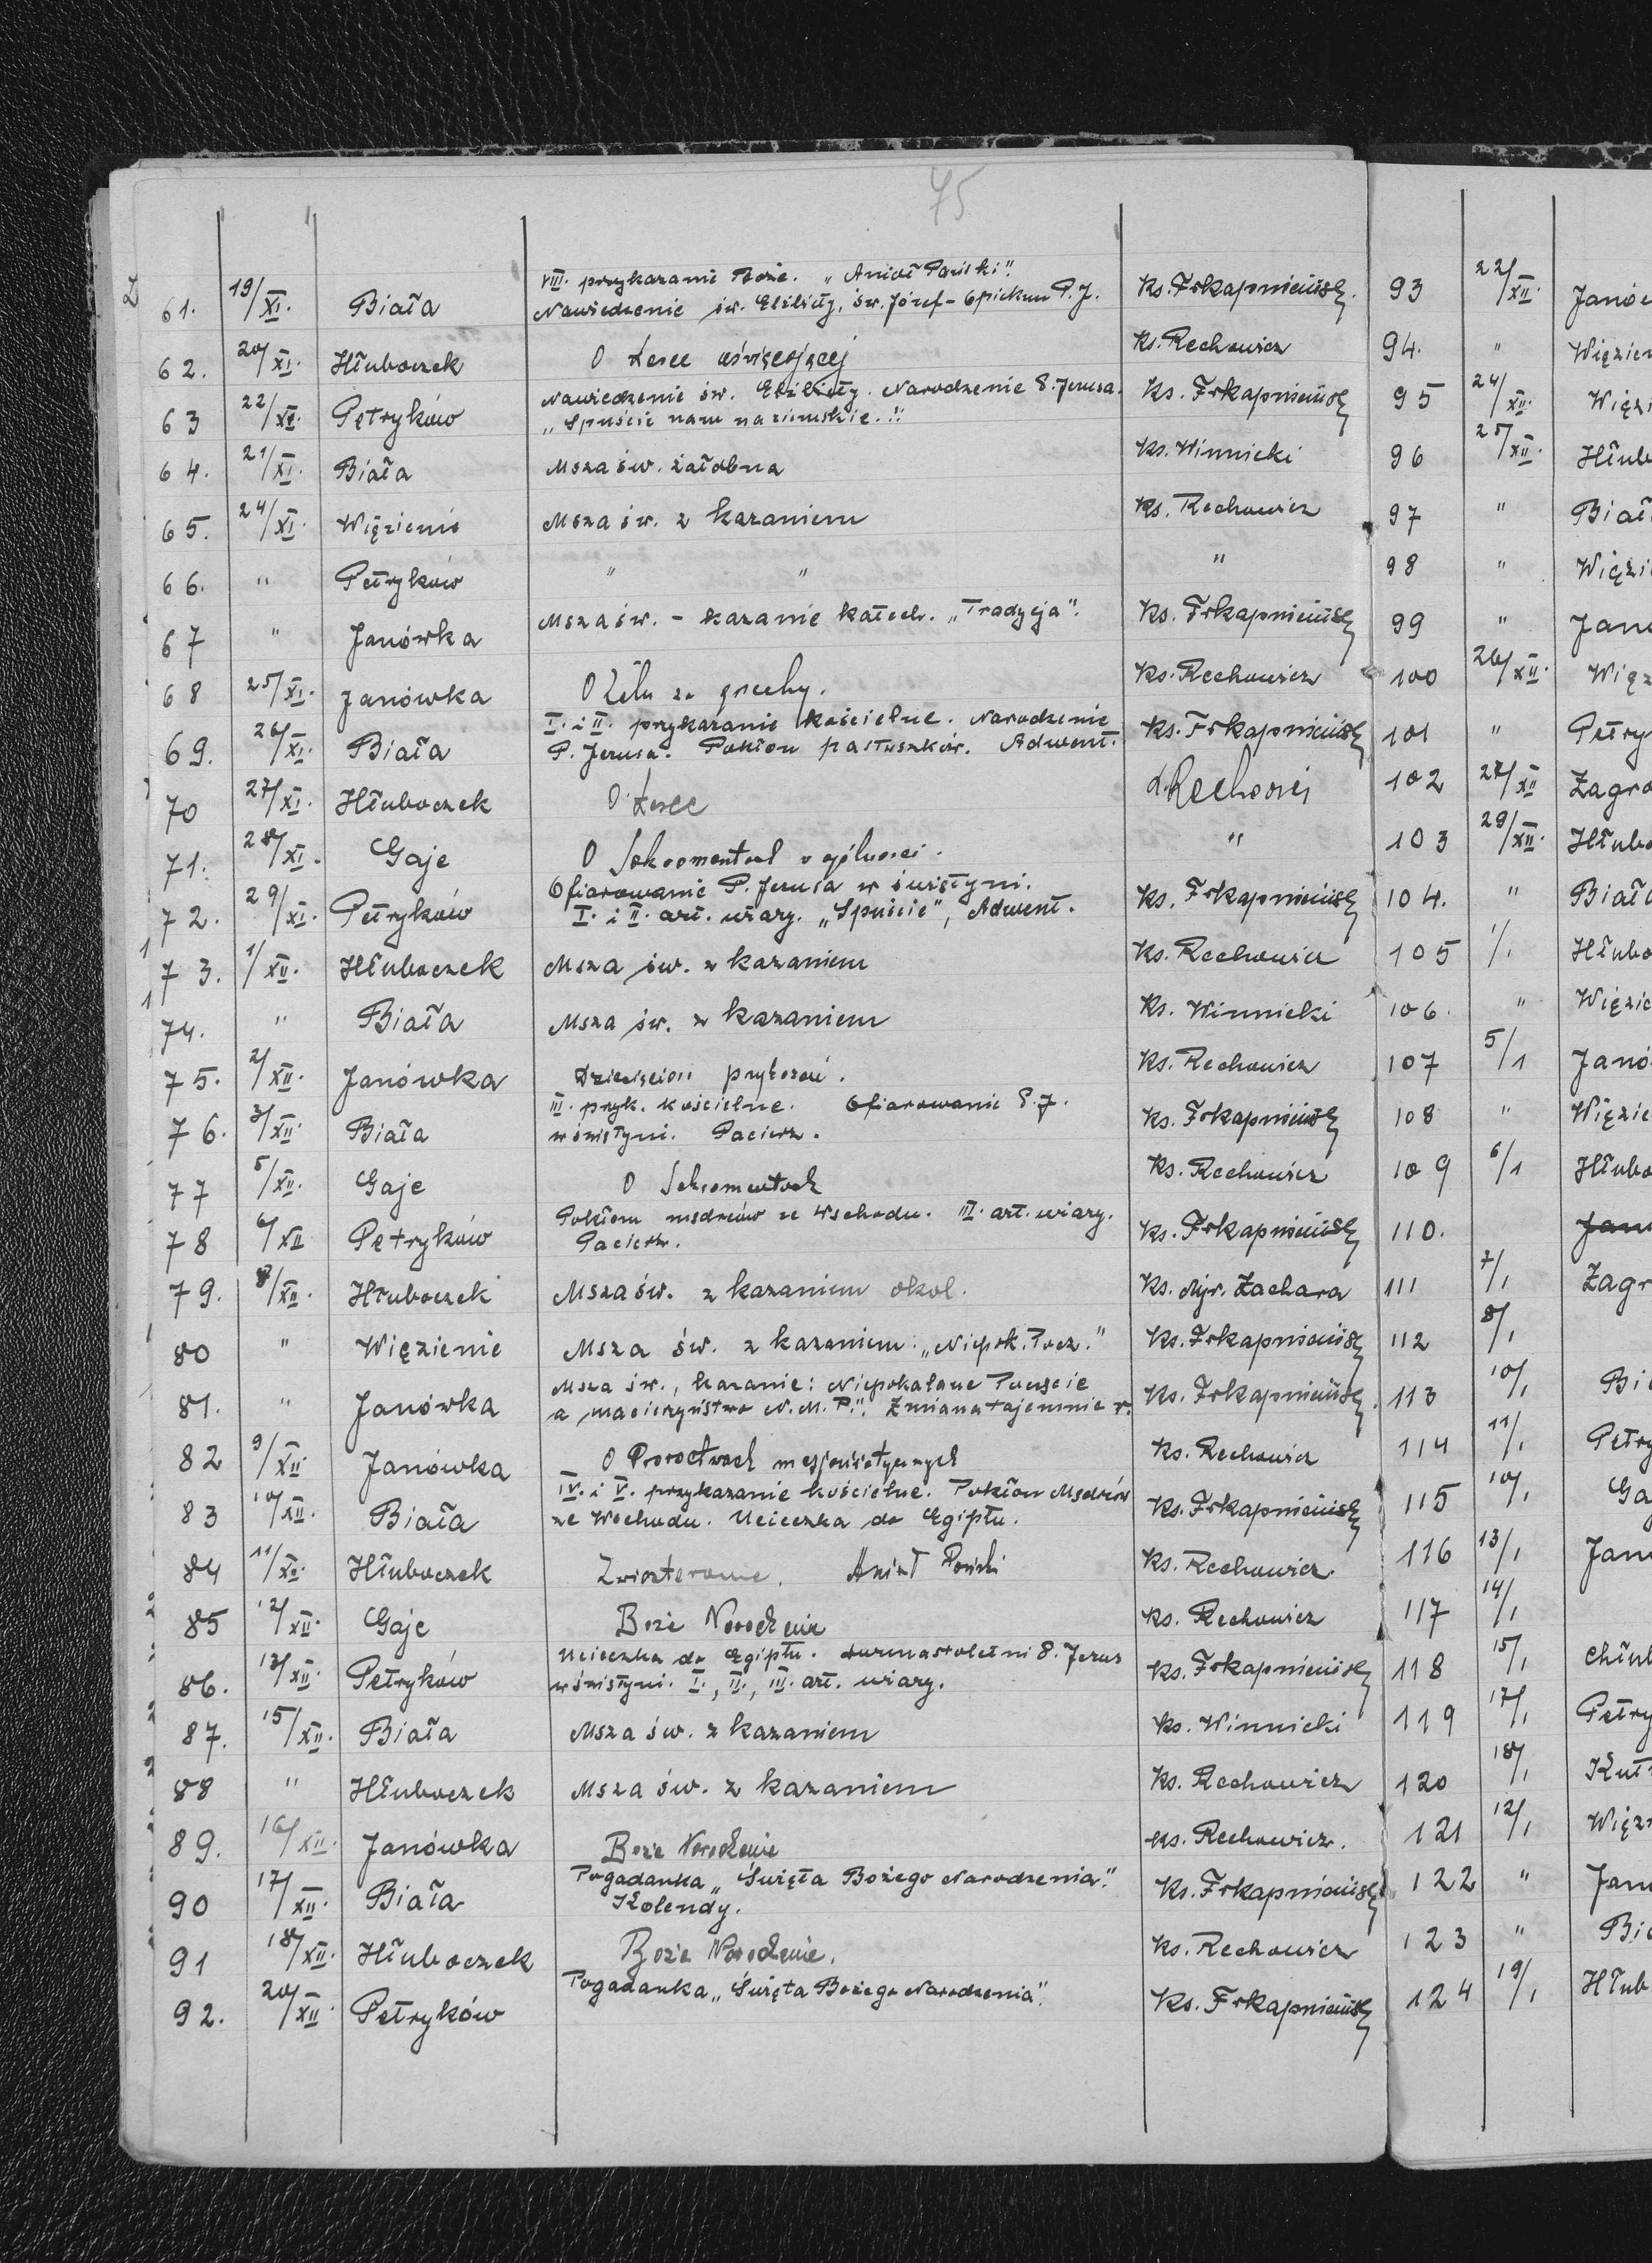 75
61. 19/XI. Biała VIII. przykazanie Boże. „Anioł Pański".
Nawiedzenie św. Elżbiety, św. Józef - Opiekun P. J. Ks. Frkapniciusz.
62. 20/XI. Hłuboczek O łasce uświęcającej Ks. Rechowicz
63 22/XI. Petryków Nawiedzenie św. Elżbiety. Narodzenie P. Jezusa. Ks. Frkapniciusz
„Spuście nam na ziemskie.!!
64. 21/XI. Biała Msza św. żałobna Ks. Winnicki
65. 24/XI. Więzienie Msza św. z kazaniem Ks. Rechowicz
66. " Petryków " " "
67 " Janówka Msza św. - kazanie katech. „Tradycja". Ks. Frkapniciusz
68 25/XI. Janówka O żalu za grzechy. Ks. Rechowicz
69. 26/XI. Biała I. i II. przykazanie kościelne. Narodzenie
P. Jezusa. Pokłon pastuszków. Adwent. Ks. Frkapniciusz
70 27/XI. Hłuboczek O łasce
71. 28/XI. Gaje O Sakramentach w ogólności. "
72. 29/XI. Petryków Ofiarowanie P. Jezusa w świątyni.
I. i II. art. wiary. „Spuście", Adwent. Ks. Frkapniciusz
73. 1/XII. Hłuboczek Msza św. z kazaniem Ks. Rechowicz
74. " Biała Msza św. z kazaniem Ks. Winnicki
75. 2/XII. Janówka Dziesięcioro przykazań. Ks. Rechowicz
76. 3/XII. Biała III. przyk. kościelne. Ofiarowanie P. J.
w świątyni. Pacierz. Ks. Frkapniciusz
77 5/XII. Gaje O Sakramentach Ks. Rechowicz
78 6/XII Petryków Pokłon mędrców ze Wschodu. III. art. wiary.
Pacierz. Ks. Frkapniciusz
79. 8/XII. Hłuboczek Msza św. z kazaniem okol. Ks. Mjr. Zachara
80 " Więzienie Msza św. z kazaniem: „Niepok. Pocz." Ks. Frkapniciusz
81. " Janówka Msza św., kazanie: Niepokalane Poczęcie
a macierzyństwo N. M. P.". Zmiana tajemnic r. Ks. Frkapniciusz.
82 9/XII. Janówka O Proroctwach mesjanistycznych Ks. Rechowicz
83 10/XII. Biała IV. i V. przykazanie kościelne. Pokłon Mędrców
ze Wschodu. Ucieczka do Egiptu. Ks. Frkapniciusz
84 11/XII. Hłuboczek Zwiastowanie. Anioł Pański Ks. Rechowicz
85 12/XII. Gaje Boże Narodzenie Ks. Rechowicz
86. 13/XII. Petryków Ucieczka do Egiptu. dwunastoletni P. Jezus
w świątyni. I., II., III. art. wiary. Ks. Frkapniciusz
87. 15/XII. Biała Msza św. z kazaniem Ks. Winnicki
88 " Hłuboczek Msza św. z kazaniem Ks. Rechowicz
89. 16/XII. Janówka Boże Narodzenie Ks. Rechowicz.
90 17/XII. Biała Pogadanka „Święta Bożego Narodzenia".
Kolendy. Ks. Frkapniciusz
91 18/XII. Hłuboczek Boże Narodzenie. Ks. Rechowicz
92. 20/XII Petryków Pogadanka „Święta Bożego Narodzenia". Ks. Frkapniciusz
93 22/XII. Janów
94. " Więzien
95 24/XII. Więzi
96 25/XII. Hłub
97 " Biał
98 " Więzi
99 " Jan
100 26/XII. Więz
101 " Petry
102 27/XII Zagro
103 29/XII. Hłubo
104. " Biała
105 1/1 Hłubo
106. " Więzie
107 5/1 Janó
108 " Więzie
109 6/1 Hłubo
110. Jan
111 7/1 Zagr
112 8/1
113 10/1 Bi
114 11/1 Petry
115 10/1 Ga
116 13/1 Jan
117 14/1
118 15/1
119 17/1 Petry
120 18/1 Kut
121 12/1 Więz
122 " Jan
123 " Bi
124 19/1 Hłub